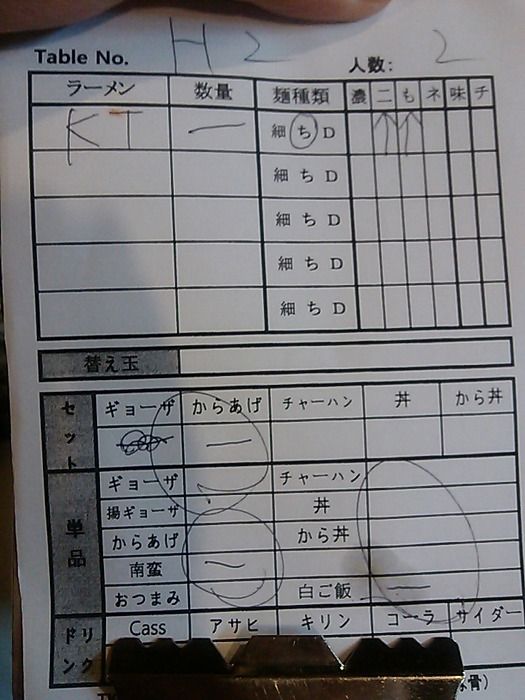 Table No. H2 人数: 2
ラーメン 数量 麺種類 濃 ニ も ネ 味 チ
KT 一 細 ち D ↑ ↑
細 ち D
細 ち D
細 ち D
細 ち D
替え玉
セット ギョーザ からあげ チャーハン 丼 から丼
一
単品 ギョーザ チャーハン
揚ギョーザ 丼
からあげ から丼
南蛮 一
おつまみ 白ご飯 一
ドリンク Cass アサヒ キリン コーラ サイダー
骨)